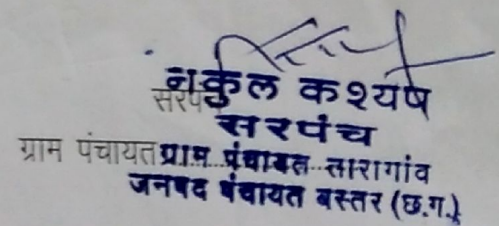 नकुल कश्यप
सरपंच
सरपंच
ग्राम पंचायत ग्राम पंचायत तारागांव
जनपद पंचायत बस्तर (छ.ग.)